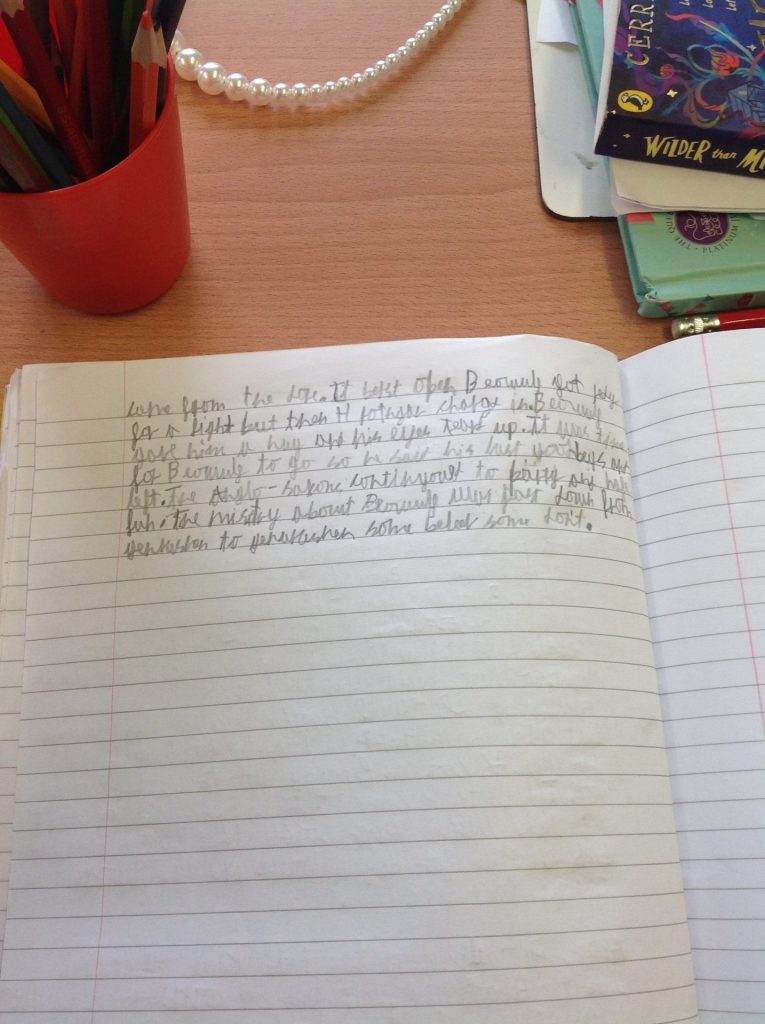 CERR
WILDER than M
PLATINUM
came from the dore. It berst open Beowulf got redy
for a fight but then H rothgar charge in. Beowulf
gave him a hug and his eyes teard up. It was time
for Beowulf to go so he said his last goodbeys and
left. The Anglo-saxons continyoud to party and have
fun. The mistry about Beowulf was past down from
genrashen to genarashen some beleef some don't.